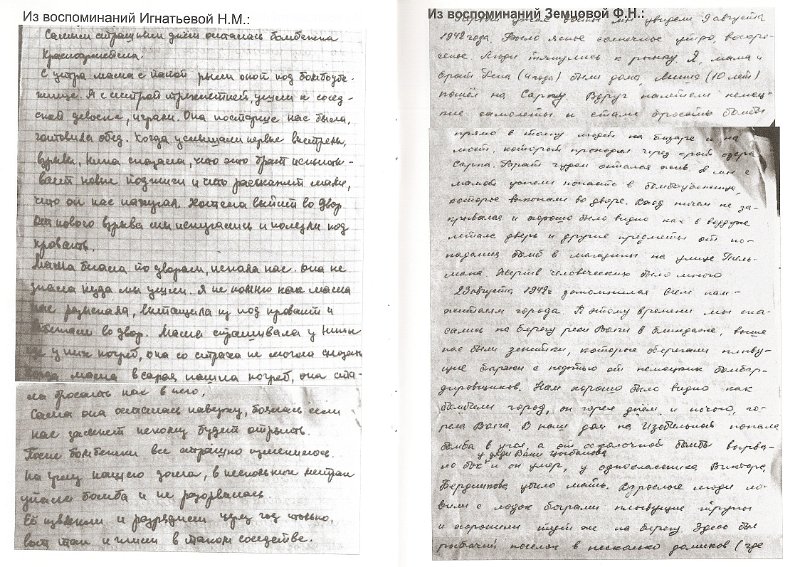 Из воспоминаний Игнатьевой Н.М.:
Самым страшным днём осталась бомбежка
Красноармейска.
С утра мама с папой рыли окоп под бомбоубе-
жище. А я с сестрой отрешетней, ушли к сосед-
ской девочке, играли. Она постарше нас была,
готовила обед. Когда услышали первые выстрелы,
взрывы, Нина сказала, что это брат испыты-
вает новые подшипни и что расскажет маме,
что он нас напугал. Хотела выйти во двор
От нового взрыва мы испугались и полезли под
кровать.
Мама бегала по дворам, искала нас. Она не
знала куда мы ушли. Я не помню как мама
нас разыскала, вытащила из под кровати и
выбежали во двор. Мама спрашивала у Нины
где у них погреб, она со страха не могла сказать
Когда мама в сарае нашла погреб, она ста-
ла бросать нас в него.
Сама она осталась наверху, боялась если
нас засыпет некому будет отрыть.
После бомбежки все страшно изменилось.
На улицу нашего дома, в нескольких метрах
упала бомба и не разорвалась
Её изъяли и разрядили через год только,
вот так и жили в таком соседстве.
Из воспоминаний Земцовой Ф.Н.:
войны мы увидели 9 августа
1942 года. Было ясное солнечное утро, воскре-
сенье. Люди тянулись к рынку. Я, мама и
брат Гена (4 года) были дома, Миша (10 лет)
пошёл на Сарпу. Вдруг налетели немец-
кие самолеты и стали бросать бомбы
прямо в толпу людей на базаре и на
мост, который проходил через озеро
Сарпа. Брат чудом остался жив, а мы с
мамой успели попасть в бомбоубежище,
которое выкопали во дворе. Вход ничем не за-
крывался и хорошо было видно как в воздухе
летали дверь и другие предметы от по-
паданий бомб в магазины на улице Тель-
мана. Жертв человеческих было много
23 августа 1942г запомнилось всем жи-
телям города. К этому времени мы ока-
зались на берегу реки Волги в блиндаже, выше
нас были зенитки, которые оберегали плыву-
щие баржи с нефтью от немецких бомбар-
дировщиков. Нам хорошо было видно как
бомбили город, он горел днём и ночью, го-
рела Волга. В наш дом на Изобильной попала
бомба в угол, а от осколочной бомбы вырва-
у дяди Вани
ло бок и он умер, у одноклассника Виктора
Бердникова убило мать. Взрослые люди ло-
вили с лодок баграми плывущие трупы
и хоронили тут же на берегу. Здесь был
рыбачий поселок в несколько домиков (где